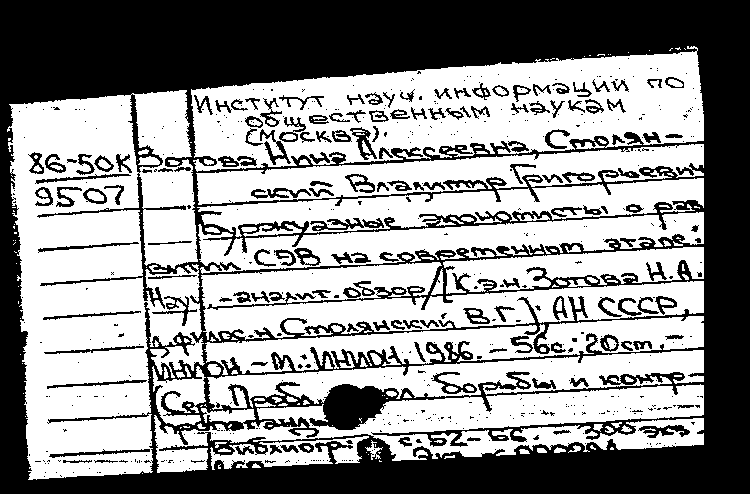 Институт науч. информации по
общественным наукам
(Москва).
86-50К Зотова, Нина Алексеевна, Столян-
9507 ский, Владимир Григорьевич
Буржуазные экономисты о раз
витии СЭВ на современном этапе:
Науч.-аналит. обзор/[К.э.н. Зотова Н.А.
д.филос.н. Столянский В.Г.]; АН СССР,
ИНИОН. - М.: ИНИОН, 1986. - 56с.; 20см. -
(Сер., Пробл. ол. борьбы и контр-
пропаганды
Библиогр.: с. 52-56. - 300 экз.